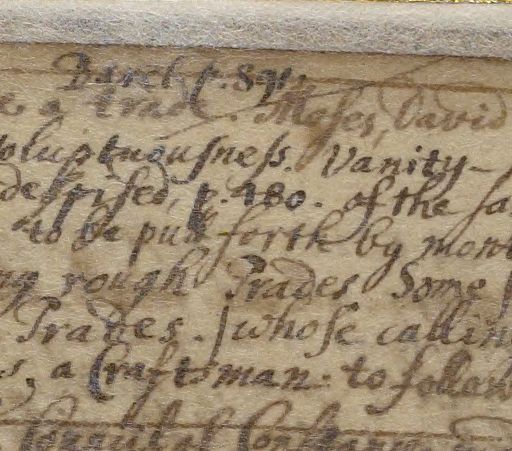 p. 891.
a trade. Moses, David
voluptuousness. Vanity-
despised, p. 180. of the sa
to be put forth by mon
ng rough Trades Some
Trades. whose callin
s, a Craftsman. to follow